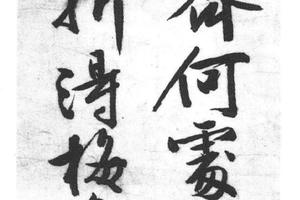 何處
折得梅